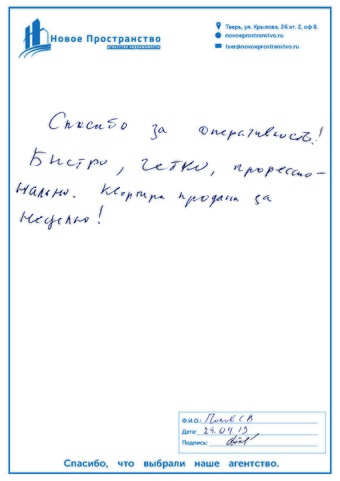 Новое Пространство
агентство недвижимости
Тверь, ул. Крылова, 26 эт. 2, оф 8.
novoeprostranstvo.ru
tver@novoeprostranstvo.ru
Спасибо за оперативность!
Быстро, четко, професcио-
нально. Квартира продана за
неделю!
Ф.И.О.: Попов С В
Дата: 29.04.19
Подпись:
Спасибо, что выбрали наше агентство.